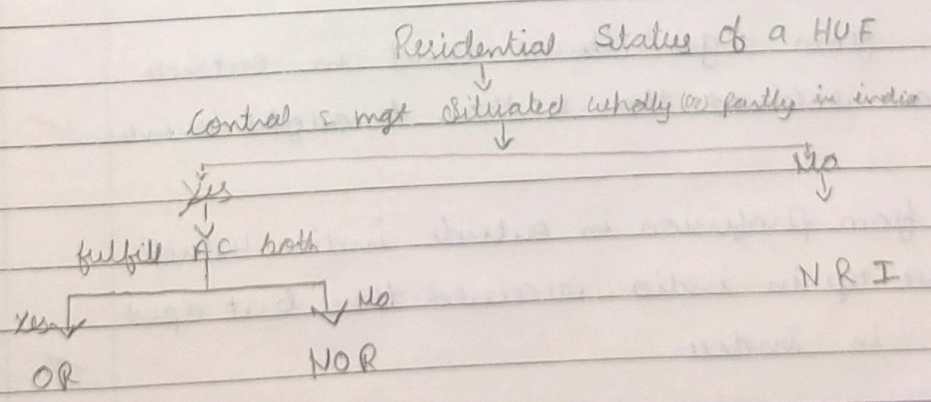 Residential Status of a HUF
Control & mgt situated wholly (or) partly in india
Yes
No
fulfill AC both
NRI
Yes
No
OR
NOR